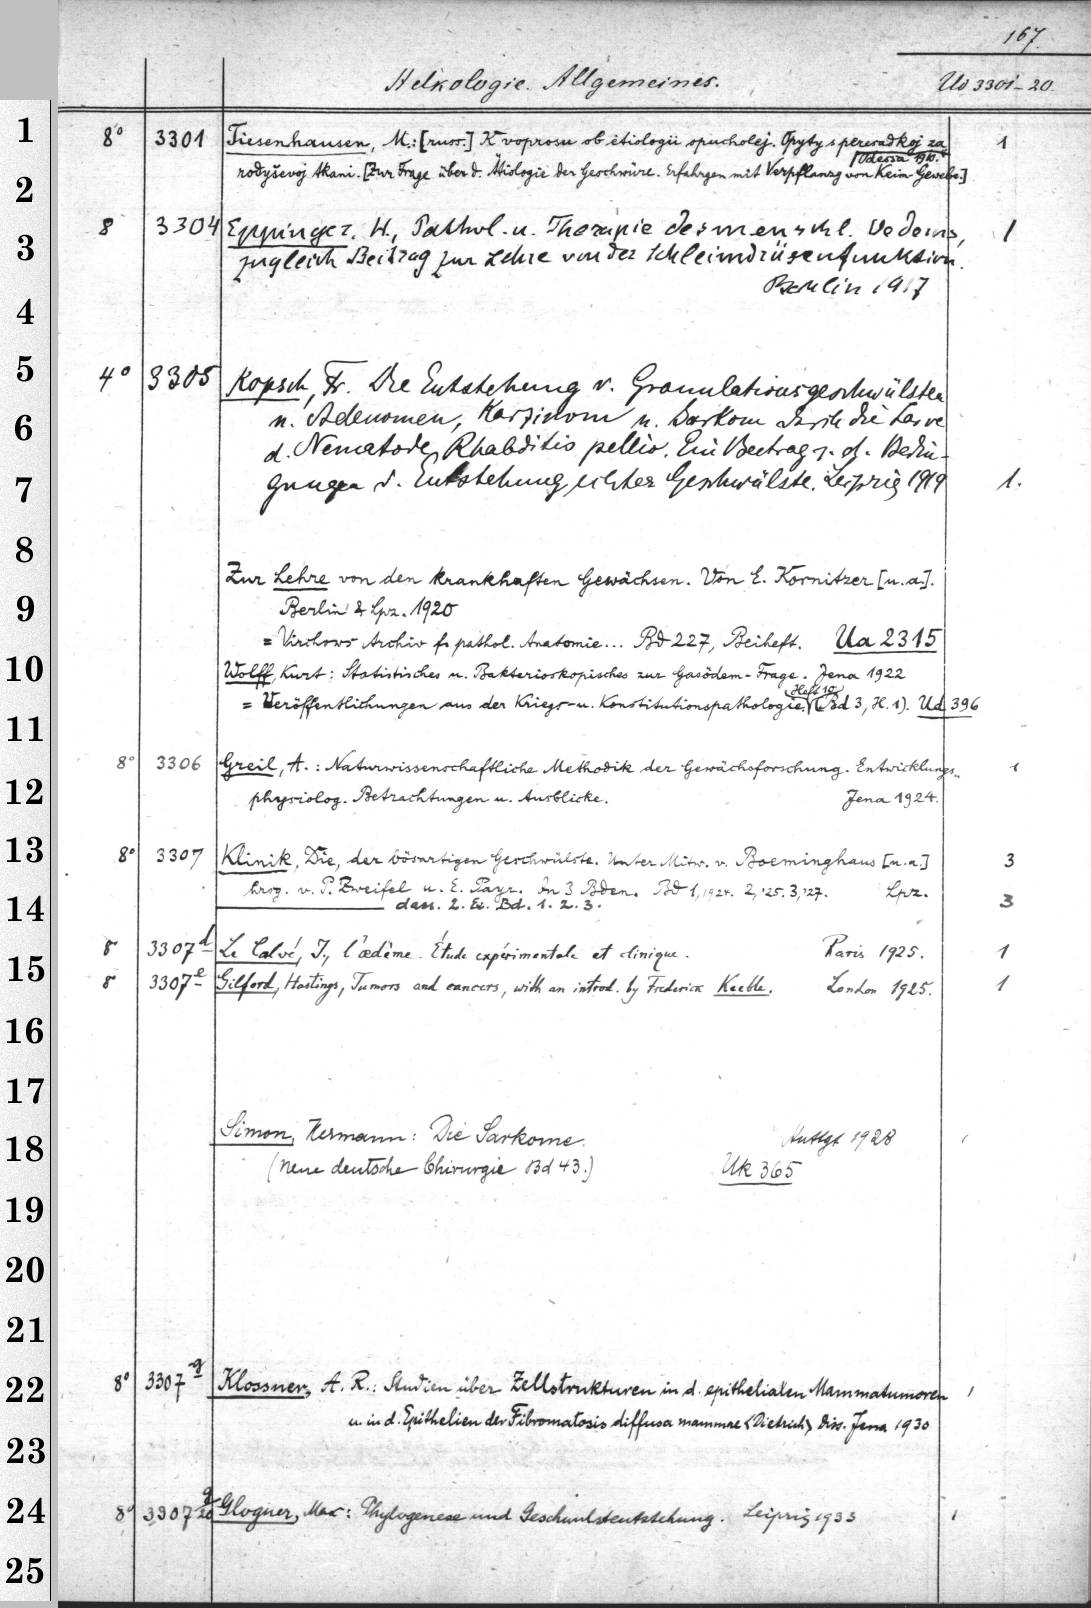 167.
Helkologie. Allgemeines. Ud 3301-20.
1
8° 3301 Tiesenhausen, M.: [russ.] K voprosu ob ėtiologii opucholej. Opyty s peresadkoj za 1
Odessa 1910.
rodyševoj tkani. [Zur Frage über d. Ätiologie der Geschwüre. Erfahrgen mit Verpflanzg von Keim-Gewebe.]
2
8 3304 Eppinger, H., Pathol. u. Therapie des menschl. Oedems, 1
3
zugleich Beitrag zur Lehre von der Schleimdrüsenfunktion.
Berlin 1917
4
5
4° 3305 Kopsch, Fr. Die Entstehung v. Granulationsgeschwülsten
6
u. Adenomen, Karzinom u. Sarkom durch die Larve
d. Nematode Rhabditis pellio. Ein Beitrag z. d. Bedin-
7
gungen d. Entstehung echter Geschwülste. Leipzig 1919 1.
8
Zur Lehre von den krankhaften Gewächsen. Von E. Kornitzer [u.a.].
9
Berlin & Lpz. 1920
= Virchows Archiv f. pathol. Anatomie... Bd 227, Beiheft. Ua 2315
10
Wolff, Kurt: Statistisches u. Bakterioskopisches zur Gasödem-Frage. Jena 1922
Heft 10
= Veröffentlichungen aus der Kriegs- u. Konstitutionspathologie. (Bd 3, H. 1). Ud 396
11
8° 3306 Greil, A.: Naturwissenschaftliche Methodik der Gewächsforschung. Entwicklungs- 1
12
physiolog. Betrachtungen u. Ausblicke. Jena 1924.
13
8° 3307 Klinik, Die, der bösartigen Geschwülste. Unter Mitw. v. Boeminghaus [u.a.] 3
hrsg. v. P. Zweifel u. E. Payr. In 3 Bden. Bd 1, 1924. 2, '25. 3, '27. Lpz.
14
dass. 2. Ex. Bd. 1. 2. 3. 3
8° 3307d Le Calvé, J., l'œdème. Étude expérimentale et clinique. Paris 1925. 1
15
8° 3307e Gilford, Hastings, Tumors and cancers, with an introd. by Frederick Keeble. London 1925. 1
16
17
Simon, Hermann: Die Sarkome. Stuttgt 1928
18
(Neue deutsche Chirurgie Bd 43.) Uk 365
19
20
21
22
8° 3307g Klossner, A. R.: Studien über Zellstrukturen in d. epithelialen Mammatumoren 1
u in d. Epithelien der Fibromatosis diffusa mammae <Dietrich> Diss. Jena 1930
23
24
8° 3307g/20 Glogner, Max: Phylogenese und Geschwulstentstehung. Leipzig 1933 1
25